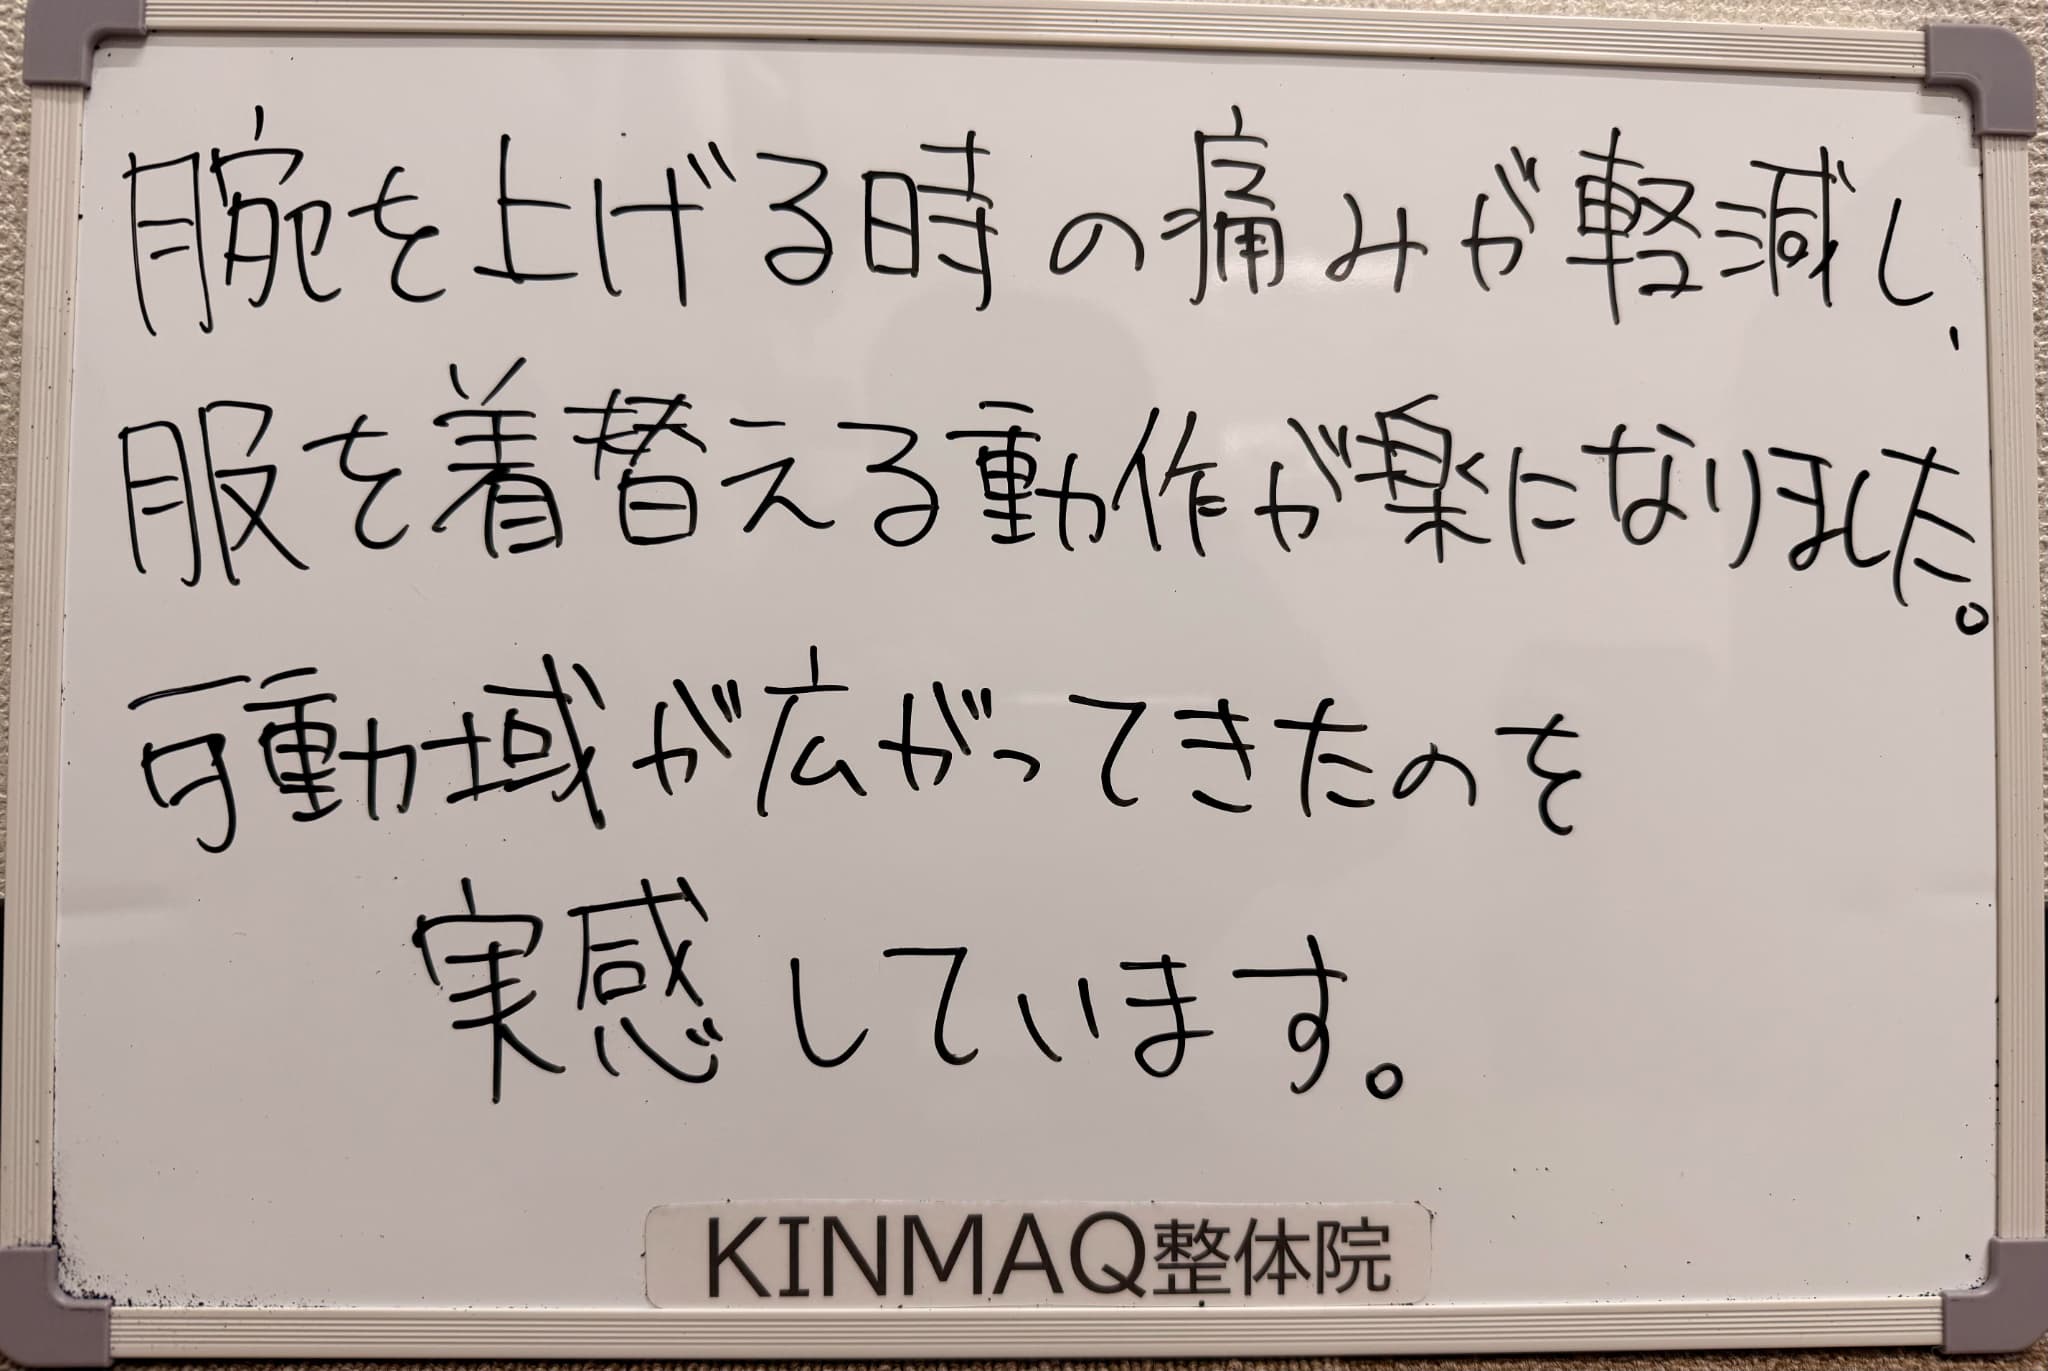 腕を上げる時の痛みが軽減し、
服を着替える動作が楽になりました。
可動域が広がってきたのを
実感しています。
KINMAQ整体院